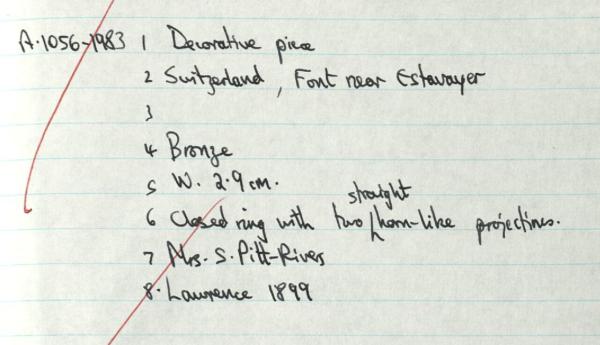 A.1056-1983 1 Decorative piece
2 Switzerland, Font near Estavayer
3
4 Bronze
5 W. 2.9cm.
6 Closed ring with two straight horn-like projections.
7 Mrs. S. Pitt-Rivers
8. Lawrence 1899